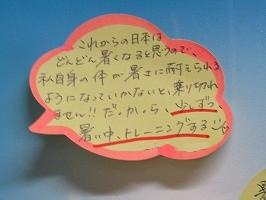 これからの日本は
どんどん暑くなると思うので、
私自身の体が暑さに耐えられる
ようになっていかないと、乗り切れ
ません!!だ・か・ら、少しずつ
暑い中、トレーニングする